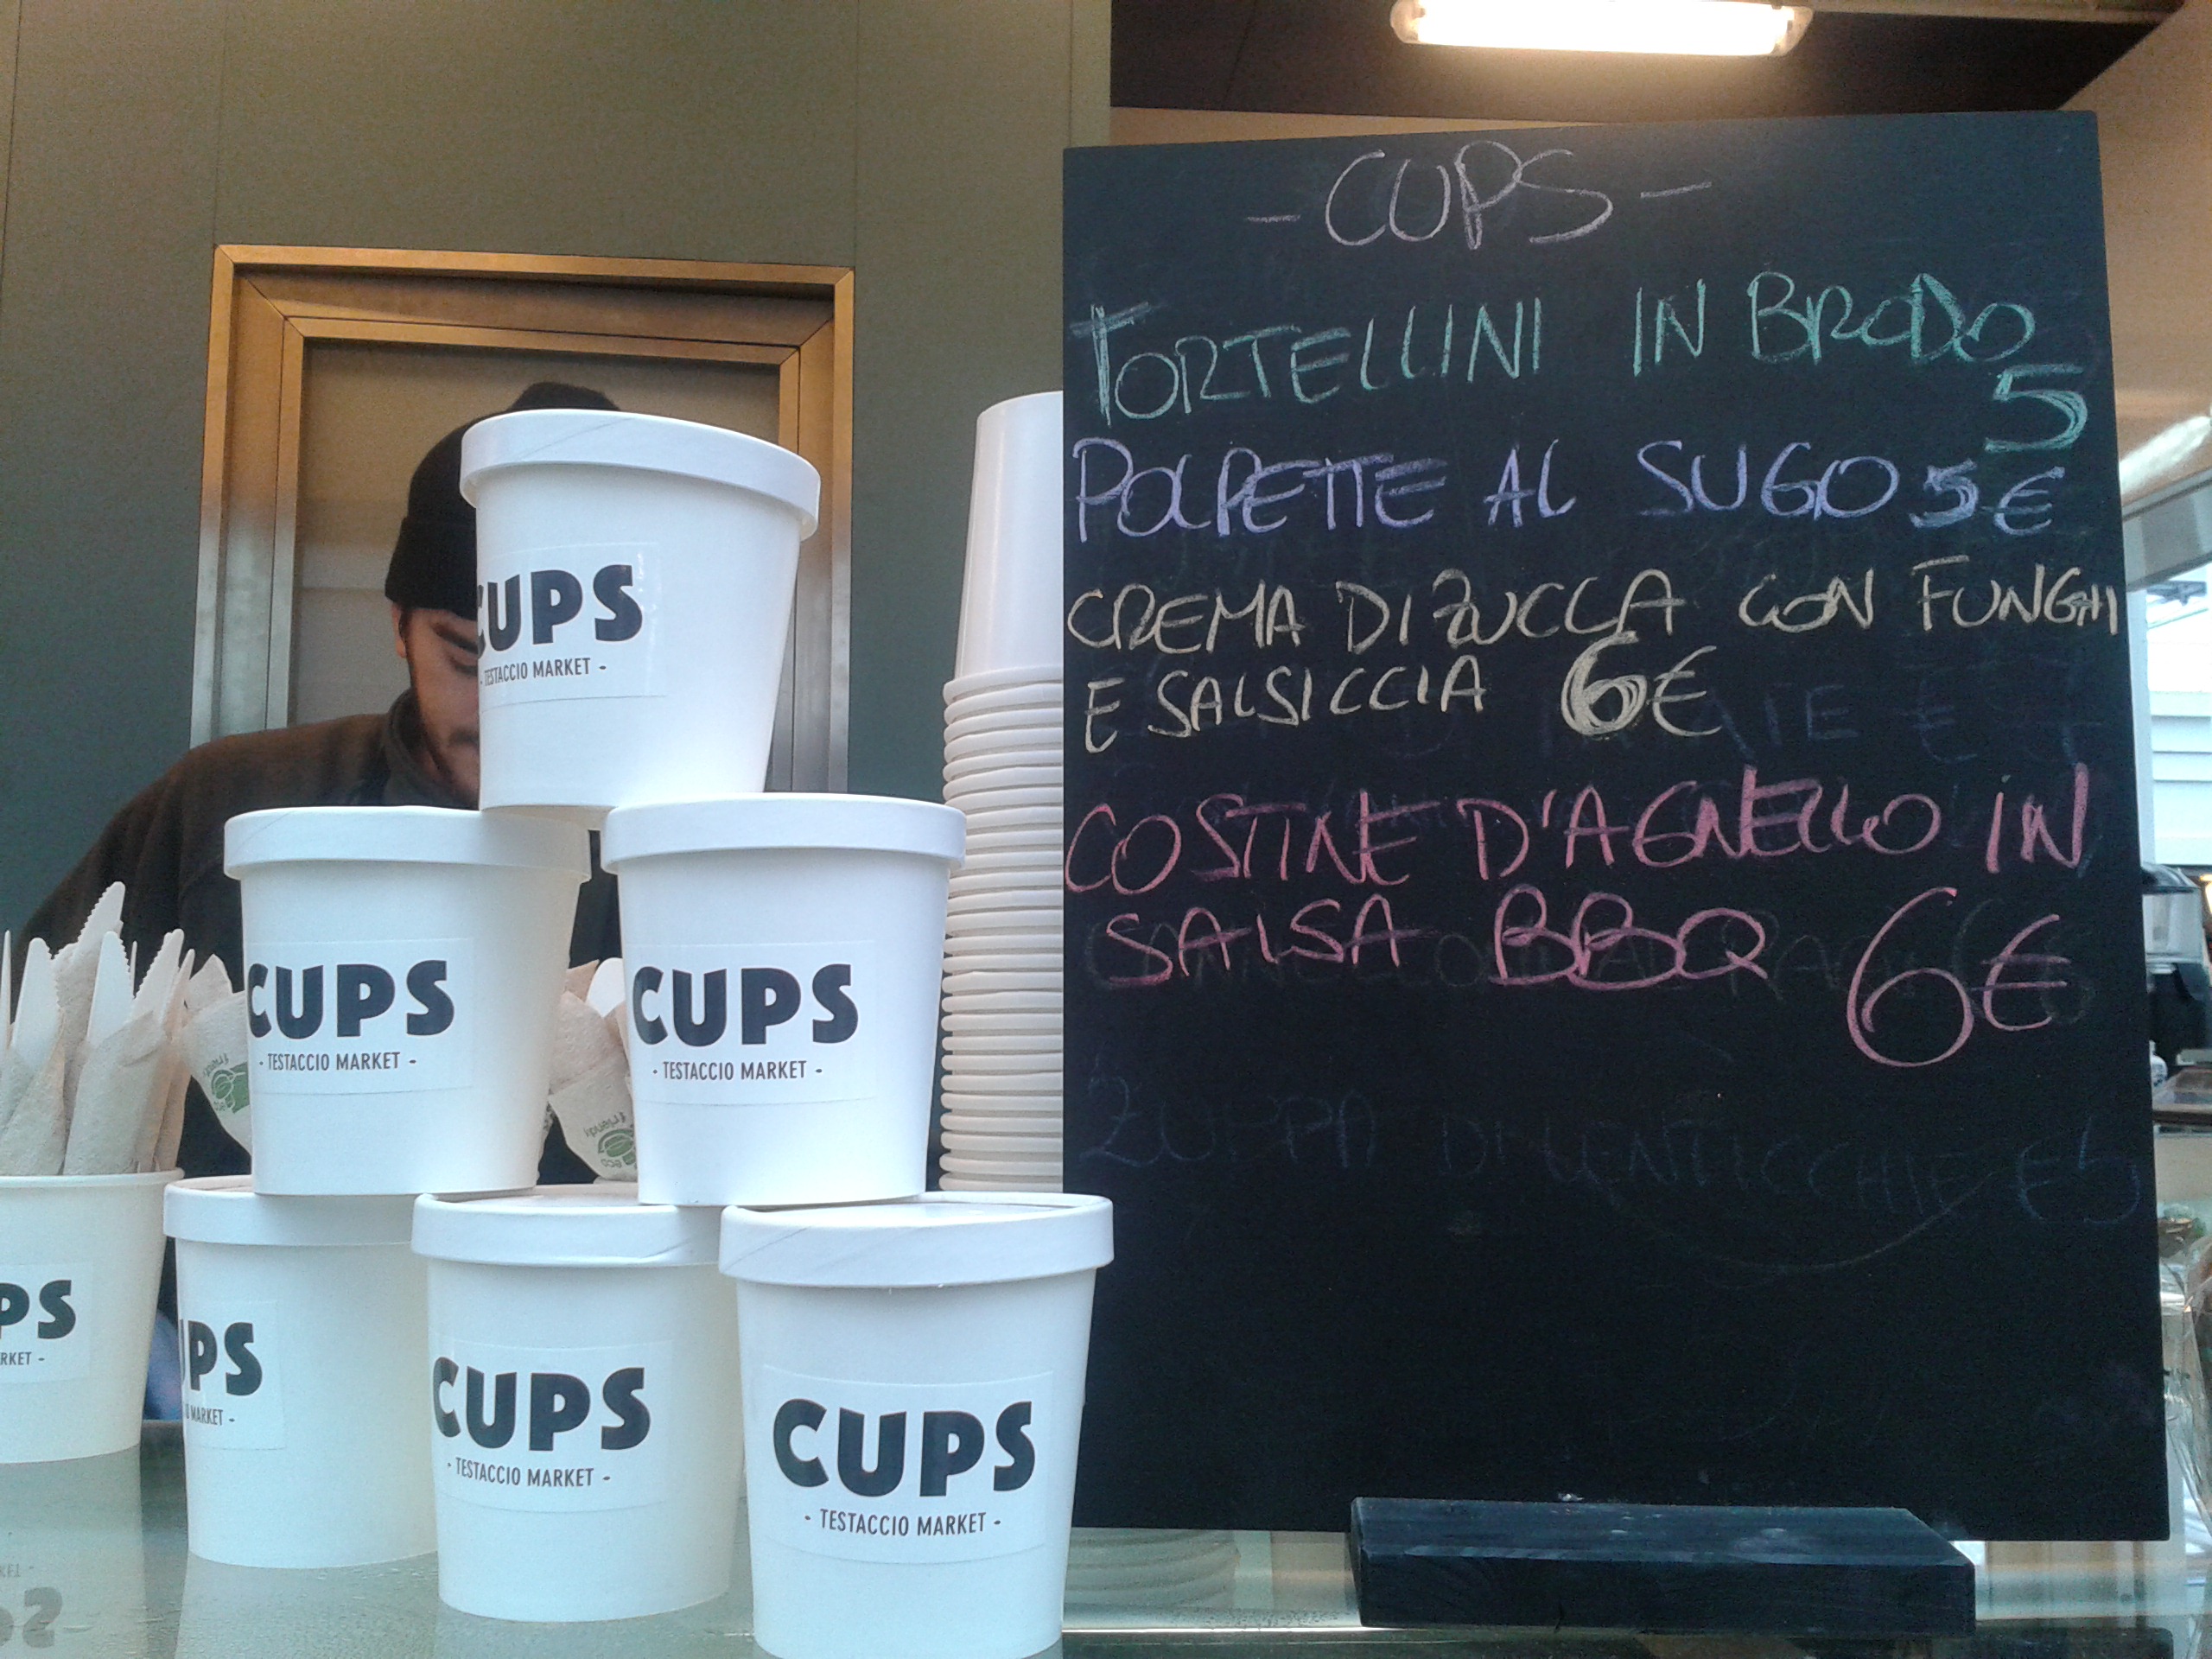 - CUPS -
TORTELLINI IN BRODO
5
POLPETTE AL SUGO 5€
CREMA DI ZUCCA CON FUNGHI
E SALSICCIA 6€
COSTINE D'AGNELLO IN
SALSA BBQ 6€
ZUPPA DI LENTICCHIE €5
CUPS
TESTACCIO MARKET -
CUPS
- TESTACCIO MARKET -
CUPS
- TESTACCIO MARKET -
PS
RKET -
UPS
MARKET -
CUPS
- TESTACCIO MARKET -
CUPS
- TESTACCIO MARKET -